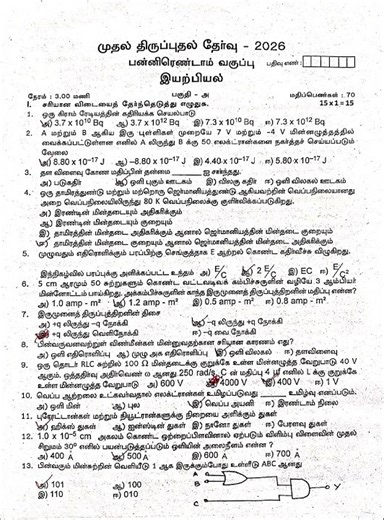 முதல் திருப்புதல் தேர்வு - 2026
பன்னிரெண்டாம் வகுப்பு பதிவு எண் :
இயற்பியல்
நேரம் : 3.00 மணி பகுதி - அ மதிப்பெண்கள் : 70
I. சரியான விடையைத் தேர்ந்தெடுத்து எழுதுக. 15 x 1 = 15
1. ஒரு கிராம் ரேடியத்தின் கதிரியக்க செயல்பாடு
அ) 3.7 x 10¹⁰ Bq ஆ) 3.7 x 10¹² Bq இ) 7.3 x 10¹⁰ Bq ஈ) 7.3 x 10¹² Bq
2. A மற்றும் B ஆகிய இரு புள்ளிகள் முறையே 7 V மற்றும் -4 V மின்னழுத்தத்தில்
வைக்கப்பட்டுள்ளன எனில் A லிருந்து B க்கு 50 எலக்ட்ரான்களை நகர்த்தச் செய்யப்படும்
வேலை
அ) 8.80 x 10⁻¹⁷ J ஆ) -8.80 x 10⁻¹⁷ J இ) 4.40 x 10⁻¹⁷ J ஈ) 5.80 x 10⁻¹⁷ J
3. தள விளைவு கோண மதிப்பின் தன்மை ______ ஐ சார்ந்தது.
அ) படுகதிர் ஆ) ஒளி புகும் ஊடகம் இ) விலகு கதிர் ஈ) ஒளி விலகல் ஊடகம்
4. ஒரு தாமிரத்துண்டு மற்றும் மற்றொரு ஜெர்மானியத்துண்டு ஆகியவற்றின் வெப்பநிலையானது
அறை வெப்பநிலையிலிருந்து 80 K வெப்பநிலைக்கு குளிர்விக்கப்படுகிறது.
அ) இரண்டின் மின்தடையும் அதிகரிக்கும்
ஆ) இரண்டின் மின்தடையும் குறையும்
இ) தாமிரத்தின் மின்தடை அதிகரிக்கும் ஆனால் ஜெர்மானியத்தின் மின்தடை குறையும்
ஈ) தாமிரத்தின் மின்தடை குறையும் ஆனால் ஜெர்மானியத்தின் மின்தடை அதிகரிக்கும்
5. முழுவதும் எதிரொளிக்கும் பரப்பிற்கு செங்குத்தாக E ஆற்றல் கொண்ட கதிர்வீச்சு விழுகிறது.
இந்நிகழ்வில் பரப்புக்கு அளிக்கப்பட்ட உந்தம் அ) E/C ஆ) 2 E/C இ) EC ஈ) E/C²
6. 5 cm ஆரமும் 50 சுற்றுகளும் கொண்ட வட்டவடிவக் கம்பிச்சுருளின் வழியே 3 ஆம்பியர்
மின்னோட்டம் பாய்கிறது. அக்கம்பிச்சுருளின் காந்த இருமுனை திருப்புத்திறனின் மதிப்பு என்ன?
அ) 1.0 amp - m² ஆ) 1.2 amp - m² இ) 0.5 amp - m² ஈ) 0.8 amp - m²
7. இருமுனைத் திருப்புத்திறனின் திசை
அ) +q லிருந்து -q நோக்கி ஆ) -q லிருந்து +q நோக்கி
இ) +q லிருந்து வெளிநோக்கி ஈ) -q வை நோக்கி
8. பின்வருவனவற்றுள் விண்மீன்கள் மின்னுவதற்கான சரியான காரணம் எது?
அ) ஒளி எதிரொளிப்பு ஆ) முழு அக எதிரொளிப்பு இ) ஒளி விலகல் ஈ) தளவிளைவு
9. ஒரு தொடர் RLC சுற்றில் 100 Ω மின்தடைக்கு குறுக்கே உள்ள மின்னழுத்த வேறுபாடு 40 V
ஆகும். ஒத்ததிர்வு அதிர்வெண் ω ஆனது 250 rad/s. C ன் மதிப்பு 4 μf எனில் L க்கு குறுக்கே
உள்ள மின்னழுத்த வேறுபாடு அ) 600 V ஆ) 4000 V இ) 400 V ஈ) 1 V
10. வெப்ப ஆற்றலை உட்கவர்வதால் எலக்ட்ரான்கள் உமிழப்படுவது ______ உமிழ்வு எனப்படும்.
அ) ஒளி மின் ஆ) புல இ) வெப்ப அயனி ஈ) இரண்டாம் நிலை
11. புரோட்டான்கள் மற்றும் நியூட்ரான்களுக்கு நிறையை அளிக்கும் துகள்
அ) ஹிக்ஸ் துகள் ஆ) ஐன்ஸ்டீன் துகள் இ) நானோ துகள் ஈ) பேரளவு துகள்
12. 1.0 x 10⁻⁵ cm அகலம் கொண்ட ஒற்றைப்பிளவினால் ஏற்படும் விளிம்பு விளைவின் முதல்
சிறுமம் 30° எனில் பயன்படுத்தப்பட்டும் ஒளியின் அலைநீளம் என்ன ?
அ) 400 Å ஆ) 500 Å இ) 600 Å ஈ) 700 Å
13. பின்வரும் மின்சுற்றின் வெளியீடு 1 ஆக இருக்கும்போது உள்ளீடு ABC ஆனது
அ) 101 ஆ) 100
இ) 110 ஈ) 010
A
B
C
Y